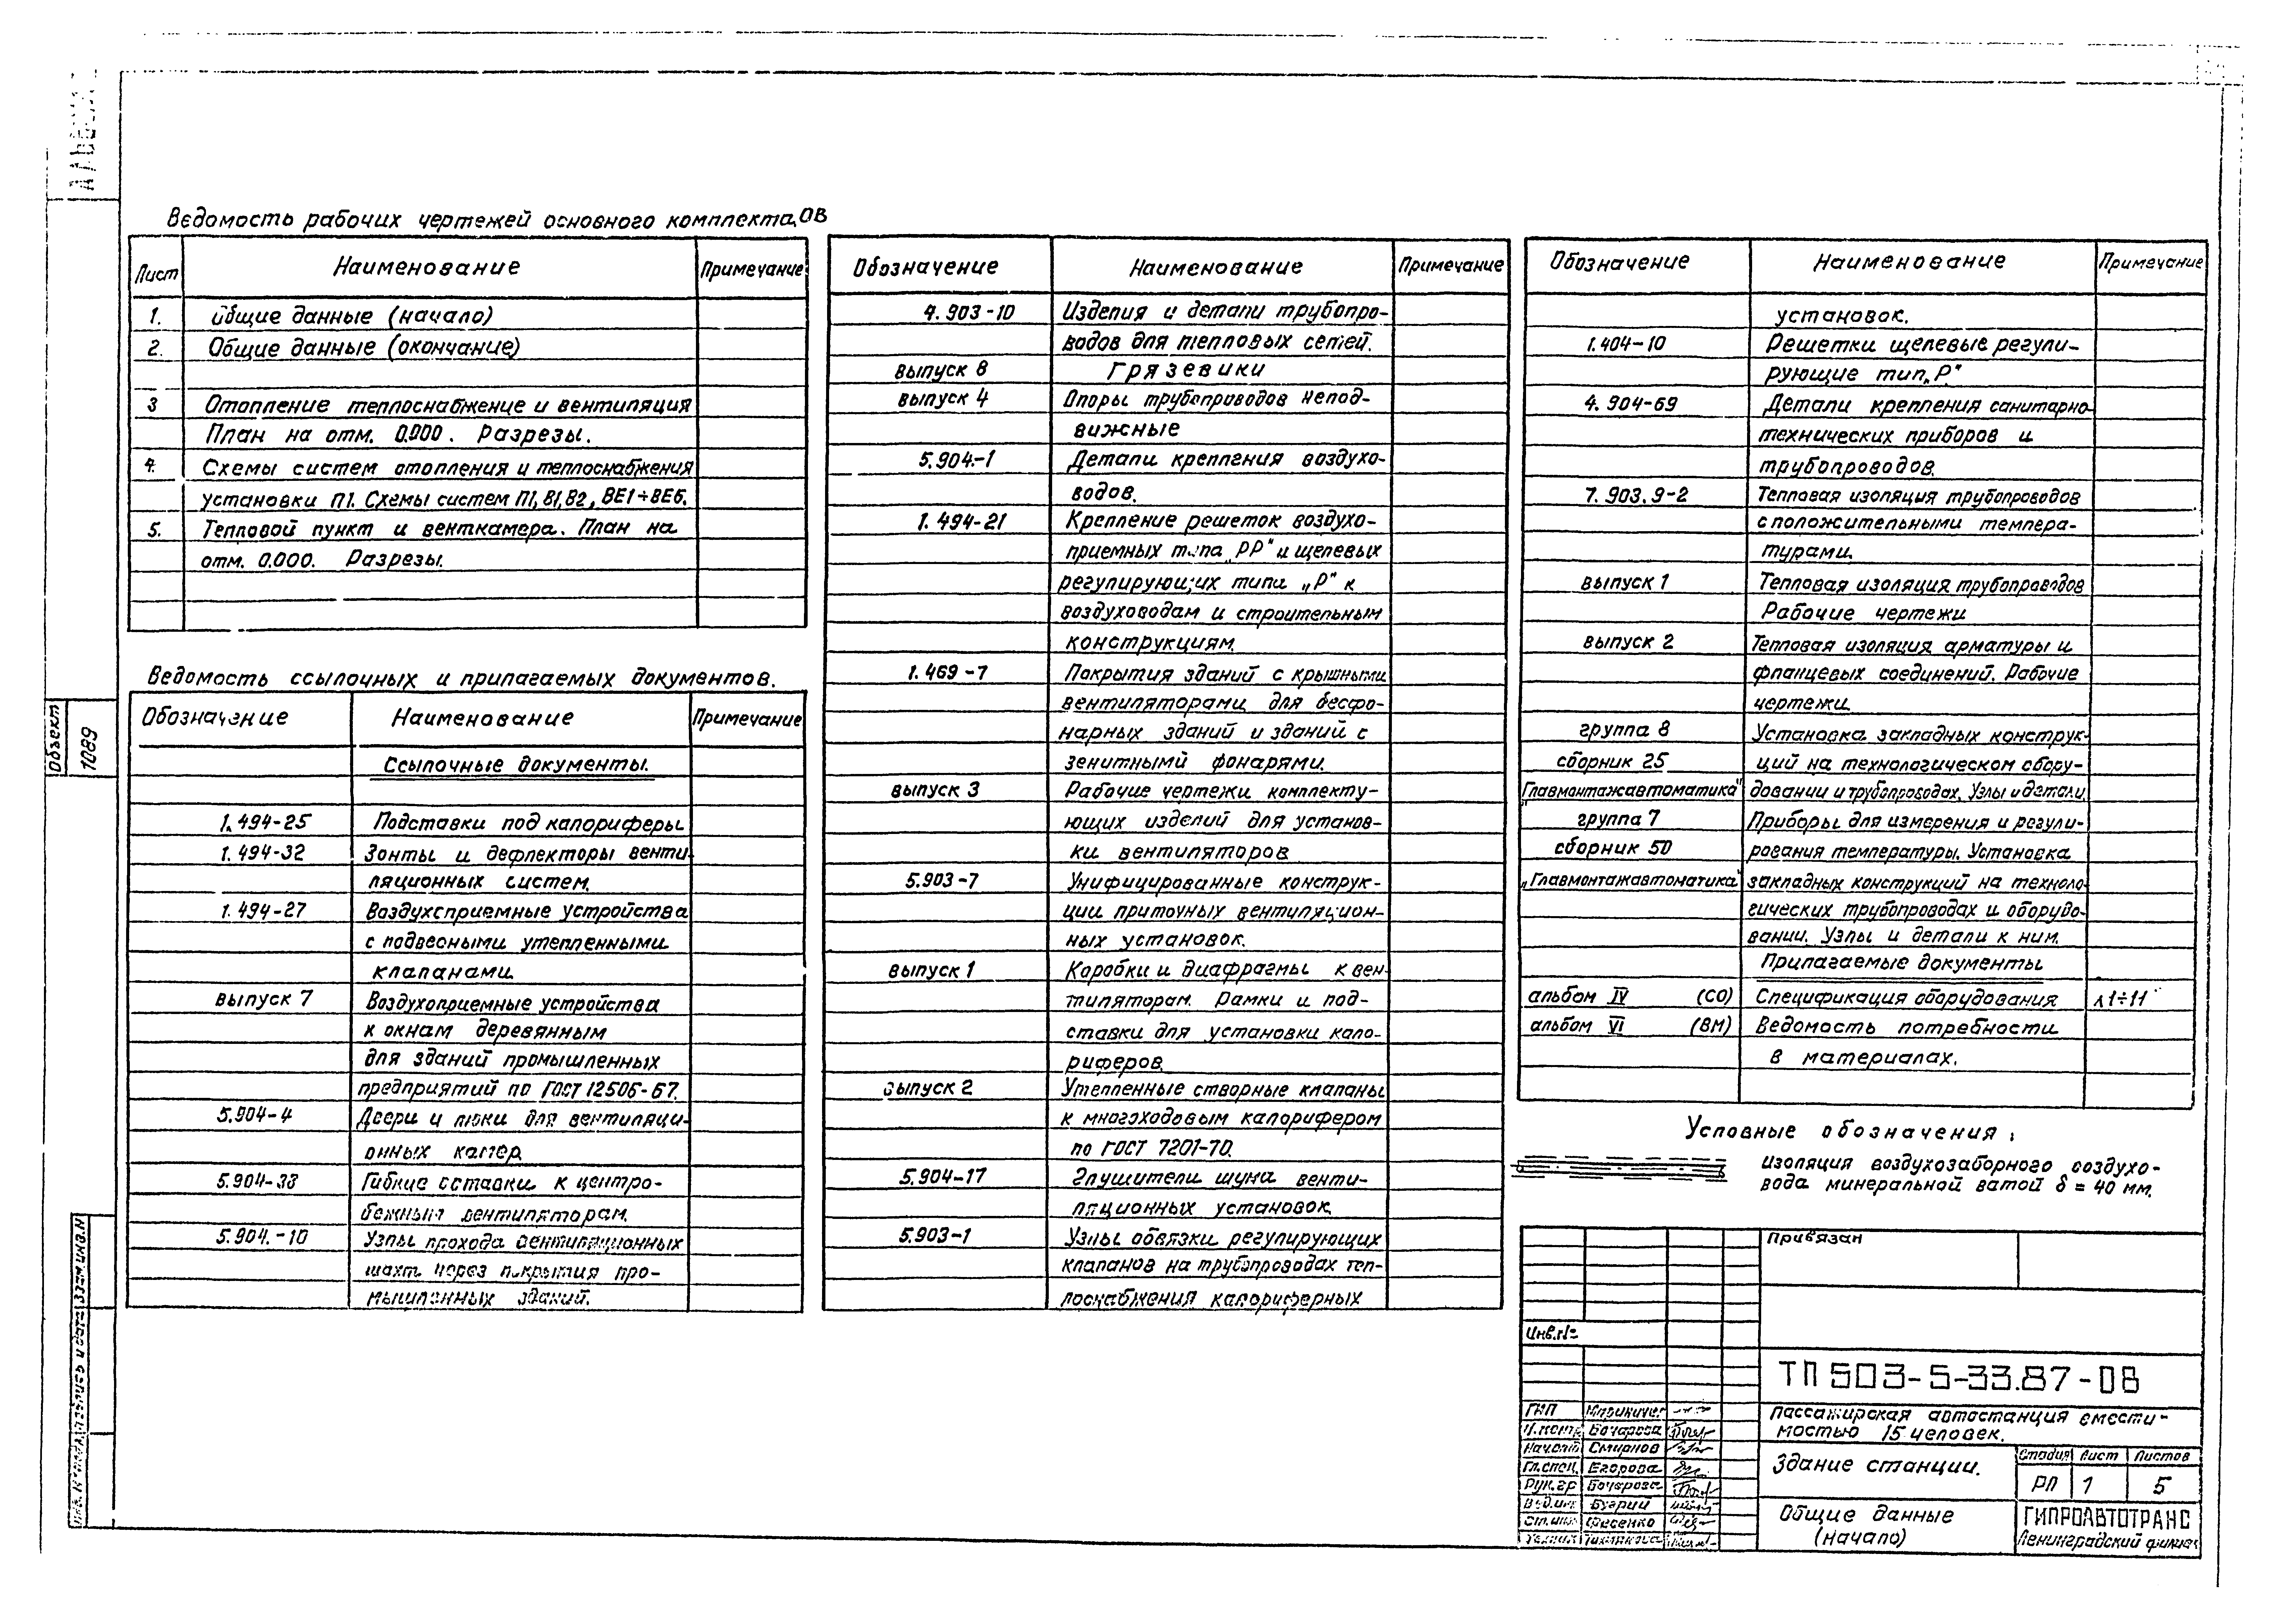 Ведомость рабочих чертежей основного комплекта ОВ
Лист Наименование Примечание
1. Общие данные (начало)
2. Общие данные (окончание)
3 Отопление теплоснабжение и вентиляция
План на отм. 0.000. Разрезы.
4. Схемы систем отопления и теплоснабжения
установки П1. Схемы систем П1, В1, В2, ВЕ1÷ВЕ6.
5. Тепловой пункт и венткамера. План на
отм. 0.000. Разрезы.
Ведомость ссылочных и прилагаемых документов.
Обозначение Наименование Примечание
Ссылочные документы.
1.494-25 Подставки под калориферы
1.494-32 Зонты и дефлекторы венти-
ляционных систем.
1.494-27 Воздухоприемные устройства
с подвесными утепленными
клапанами.
выпуск 7 Воздухоприемные устройства
к окнам деревянным
для зданий промышленных
предприятий по ГОСТ 12506-67.
5.904-4 Двери и люки для вентиляци-
онных камер
5.904-38 Гибкие вставки к центро-
бежным вентиляторам.
5.904.-10 Узлы прохода вентиляционных
шахт через покрытия про-
мышленных зданий.
Обозначение Наименование Примечание
4.903-10 Изделия и детали трубопро-
водов для тепловых сетей.
выпуск 8 Грязевики
выпуск 4 Опоры трубопроводов непод-
вижные
5.904-1 Детали крепления воздухо-
водов.
1.494-21 Крепление решеток воздухо-
приемных типа „РР" и щелевых
регулирующих типа „Р" к
воздуховодам и строительным
конструкциям.
1.469-7 Покрытия зданий с крышными
вентиляторами для бесфо-
нарных зданий и зданий с
зенитными фонарями.
выпуск 3 Рабочие чертежи комплекту-
ющих изделий для установ-
ки вентиляторов
5.903-7 Унифицированные конструк-
ции приточных вентиляцион-
ных установок.
выпуск 1 Коробки и диафрагмы к вен-
тиляторам. Рамки и под-
ставки для установки кало-
риферов
выпуск 2 Утепленные створные клапаны
к многоходовым калориферам
по ГОСТ 7201-70.
5.904-17 Глушители шума венти-
ляционных установок
5.903-1 Узлы обвязки регулирующих
клапанов на трубопроводах теп-
лоснабжения калориферных
Обозначение Наименование Примечание
установок.
1.404-10 Решетки щелевые регули-
рующие тип „Р"
4.904-69 Детали крепления санитарно-
технических приборов и
трубопроводов.
7.903.9-2 Тепловая изоляция трубопроводов
с положительными темпера-
турами.
выпуск 1 Тепловая изоляция трубопроводов
Рабочие чертежи
выпуск 2 Тепловая изоляция арматуры и
фланцевых соединений. Рабочие
чертежи
группа 8 Установка закладных конструк-
сборник 25 ций на технологическом обору-
„Главмонтажавтоматика" довании и трубопроводах. Узлы и детали.
группа 7 Приборы для измерения и регули-
сборник 50 рования температуры. Установка
„Главмонтажавтоматика" закладных конструкций на техноло-
гических трубопроводах и оборудо-
вании. Узлы и детали к ним.
Прилагаемые документы
альбом IV (СО) Спецификация оборудования л1÷11
альбом VI (ВМ) Ведомость потребности
в материалах.
Условные обозначения:
Изоляция воздухозаборного воздухо-
вода минеральной ватой δ = 40 мм.
Привязан
Инв.№
ТП 503-5-33.87-ОВ
Пассажирская автостанция вмести-
мостью 15 человек.
Здание станции.
Стадия Лист Листов
РП 1 5
Общие данные
(начало)
ГИПРОАВТОТРАНС
Ленинградский филиал
ГИП
Н.контр. Бочарова
Начотд Смирнов
Гл.спец. Егорова
Рук.гр Бочарова
Вед.инж Бугрий
Ст.инж Фесенко
Альбом
Объект
1089
Инв. № подл. Подпись и дата Взам.инв.N